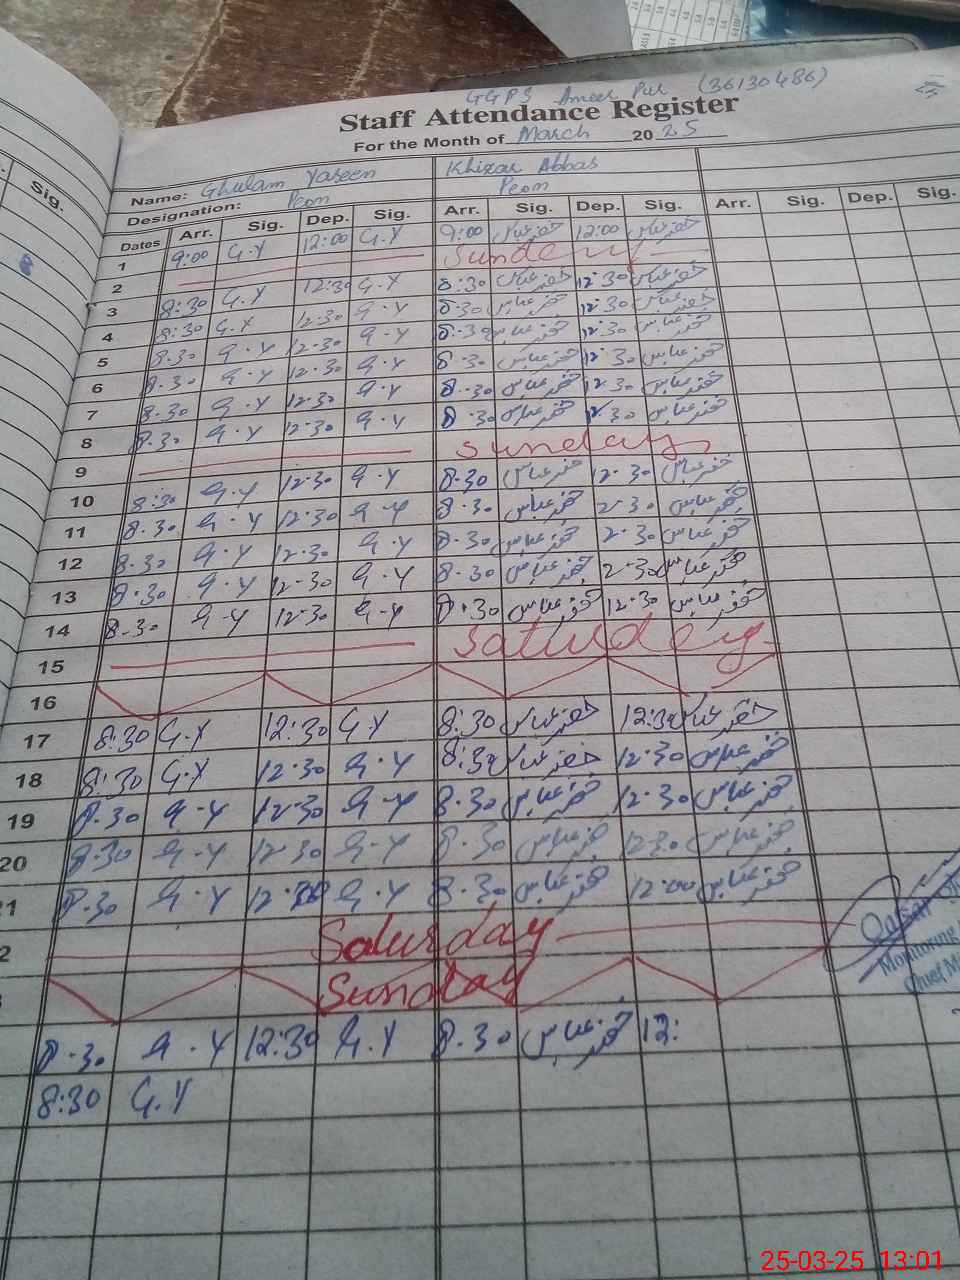 GGPS Ameer Pur (36130486)
Staff Attendance Register
For the Month of March 20 25
Sig.
Name: Ghulam Yaseen Khizar Abbas
Designation: Peon Peon
Dates Arr. Sig. Dep. Sig. Arr. Sig. Dep. Sig. Arr. Sig. Dep. Sig.
1 9:00 G.Y 12:00 G.Y 9:00 خضر عباس 12:00 خضر عباس
2 Sunday
3 8:30 G.Y 12:30 G.Y 8:30 خضر عباس 12:30 خضر عباس
4 8:30 G.Y 12:30 G.Y 8:30 خضر عباس 12:30 خضر عباس
5 8:30 G.Y 12:30 G.Y 8:30 خضر عباس 12:30 خضر عباس
6 8:30 G.Y 12:30 G.Y 8:30 خضر عباس 12:30 خضر عباس
7 8:30 G.Y 12:30 G.Y 8:30 خضر عباس 12:30 خضر عباس
8 8:30 G.Y 12:30 G.Y 8:30 خضر عباس 12:30 خضر عباس
9 Sunday
10 8:30 G.Y 12:30 G.Y 8:30 خضر عباس 12:30 خضر عباس
11 8:30 G.Y 12:30 G.Y 8:30 خضر عباس 2:30 خضر عباس
12 8:30 G.Y 12:30 G.Y 8:30 خضر عباس 2:30 خضر عباس
13 8:30 G.Y 12:30 G.Y 8:30 خضر عباس 2:30 خضر عباس
14 8:30 G.Y 12:30 G.Y 8:30 خضر عباس 12:30 خضر عباس
15 Saturday
16
17 8:30 G.Y 12:30 G.Y 8:30 خضر عباس 12:30 خضر عباس
18 8:30 G.Y 12:30 G.Y 8:30 خضر عباس 12:30 خضر عباس
19 8:30 G.Y 12:30 G.Y 8:30 خضر عباس 12:30 خضر عباس
20 8:30 G.Y 12:30 G.Y 8:30 خضر عباس 12:30 خضر عباس
21 8:30 G.Y 12:30 G.Y 8:30 خضر عباس 12:00 خضر عباس
2 Saturday
Sunday
8:30 G.Y 12:30 G.Y 8:30 خضر عباس 12:
8:30 G.Y
Qaisar
Monitoring
Chief M
25-03-25 13:01